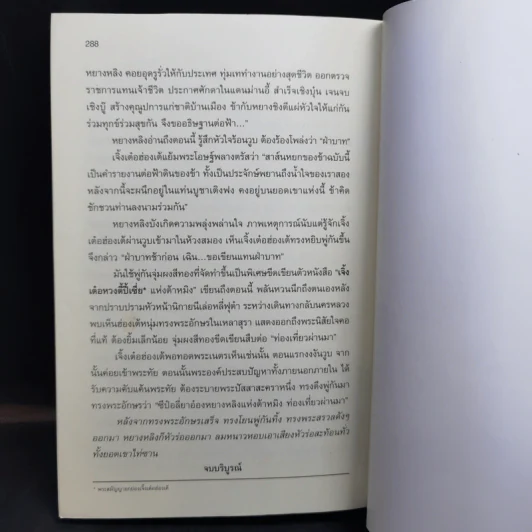 288
หยางหลิง คอยอุดรูรั่วให้กับประเทศ ทุ่มเททำงานอย่างสุดชีวิต ออกตรวจ
ราชการแทนเจ้าชีวิต ประกาศศักดาในแดนม่านอี๋ สำเร็จเชิงบุ๋น เจนจบ
เชิงบู๊ สร้างคุณูปการแก่ชาติบ้านเมือง ข้ากับหยางชิงดีแผ่หัวใจให้แก่กัน
ร่วมทุกข์ร่วมสุขกัน จึงขออธิษฐานต่อฟ้า..."
หยางหลิงอ่านถึงตอนนี้ รู้สึกหัวใจร้อนวูบ ต้องร้องโพล่งว่า "ฝ่าบาท"
เจิ้งเต๋อฮ่องเต้แย้มพระโอษฐ์พลางตรัสว่า "สาส์นหยกของข้าฉบับนี้
เป็นคำรายงานต่อฟ้าดินของข้า ทั้งเป็นประจักษ์พยานถึงน้ำใจของเราสอง
หลังจากนี้จะผนึกอยู่ในแท่นบูชาเติงฟง คงอยู่บนยอดเขาแห่งนี้ ข้าคิด
ชักชวนท่านลงนามร่วมกัน"
หยางหลิงบังเกิดความพลุ่งพล่านใจ ภาพเหตุการณ์นับแต่รู้จักเจิ้ง
เต๋อฮ่องเต้ผ่านวูบเข้ามาในห้วงสมอง เห็นเจิ้งเต๋อฮ่องเต้ทรงหยิบพู่กันขึ้น
จึงกล่าว "ฝ่าบาทช้าก่อน เฉิน...ขอเขียนแทนฝ่าบาท"
มันใช้พู่กันจุ่มผงสีทองที่จัดทำขึ้นเป็นพิเศษขีดเขียนตัวหนังสือ "เจิ้ง
เต๋อหวงตี้ปี้เซี่ย* แห่งต้าหมิง" เขียนถึงตอนนี้ พลันหวนนึกถึงตนเองหลัง
จากปราบปรามหัวหน้านิกายนีเล่อหลี่ฟุต๋า ระหว่างเดินทางกลับนครหลวง
พบเห็นฮ่องเต้หนุ่มทรงพระอักษรในเหลาสุรา แสดงออกถึงพระนิสัยใจคอ
ที่แท้ ต้องยิ้มเล็กน้อย จุ่มผงสีทองขีดเขียนสืบต่อ "ท่องเที่ยวผ่านมา"
เจิ้งเต๋อฮ่องเต้พอทอดพระเนตรเห็นเช่นนั้น ตอนแรกงงงันวูบ จาก
นั้นค่อยเข้าพระทัย ตอนนั้นพระองค์ประสบปัญหาทั้งภายนอกภายใน ได้
รับความคับแค้นพระทัย ต้องระบายพระปัสสาสะคราหนึ่ง ทรงดึงพู่กันมา
ทรงพระอักษรว่า "ซีป๋อลี่ยาอ๋องหยางหลิงแห่งต้าหมิง ท่องเที่ยวผ่านมา"
หลังจากทรงพระอักษรเสร็จ ทรงโยนพู่กันทิ้ง ทรงพระสรวลดังๆ
ออกมา หยางหลิงก็หัวร่อออกมา ลมหนาวหอบเอาเสียงหัวร่อสะท้อนทั่ว
ทั้งยอดเขาไท่ซาน
จบบริบูรณ์